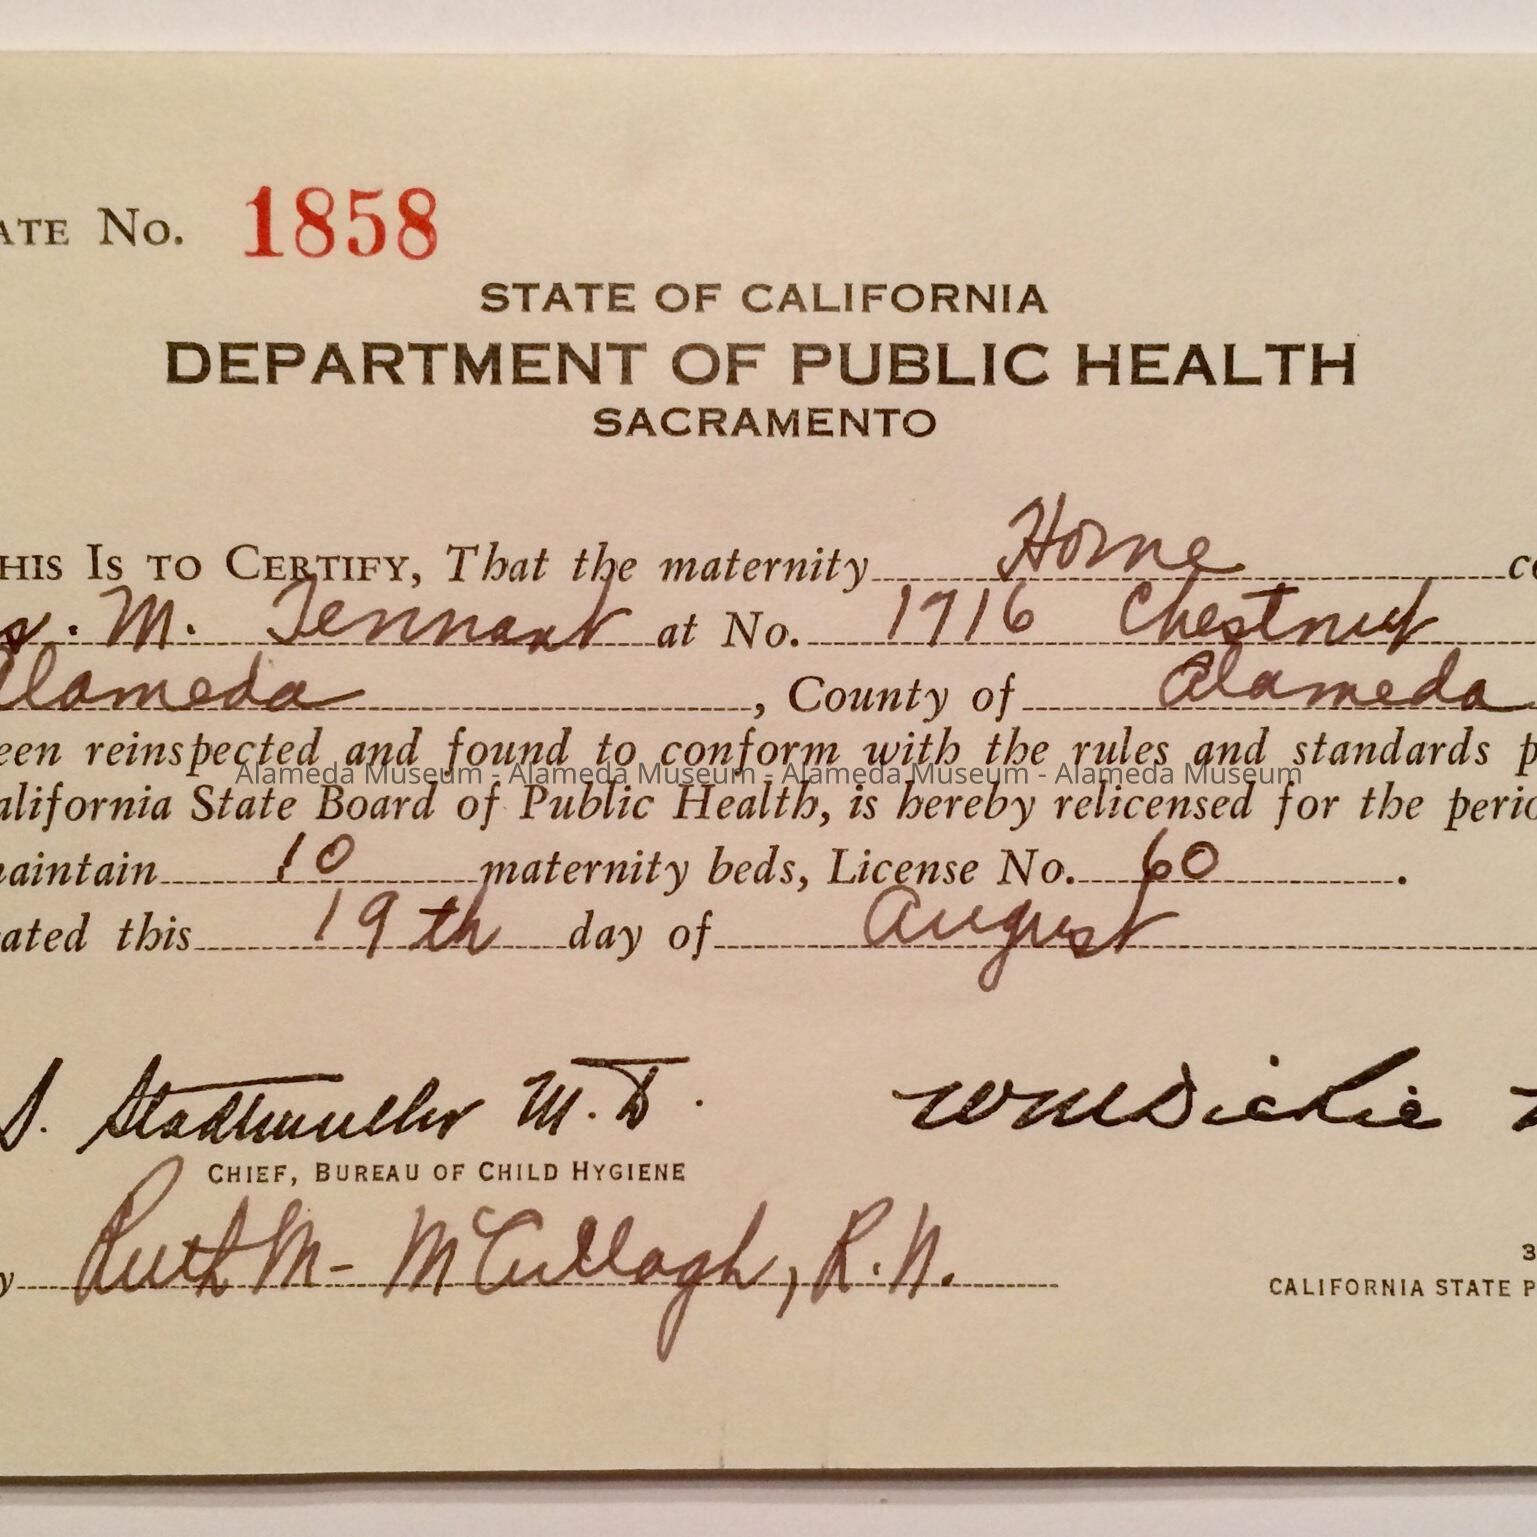 ATE No. 1858
STATE OF CALIFORNIA
DEPARTMENT OF PUBLIC HEALTH
SACRAMENTO
HIS IS TO CERTIFY, That the maternity Home co
M. Tennant at No. 1716 Chestnut
Alameda, County of Alameda
een reinspected and found to conform with the rules and standards p
Alameda Museum - Alameda Museum - Alameda Museum - Alameda Museum
alifornia State Board of Public Health, is hereby relicensed for the perio
aintain 10 maternity beds, License No. 60.
ated this 19th day of August
S. Stadtmuller M.D. WM Dickie
CHIEF, BUREAU OF CHILD HYGIENE
y Ruth M- McCullagh, R.N.
3
CALIFORNIA STATE P